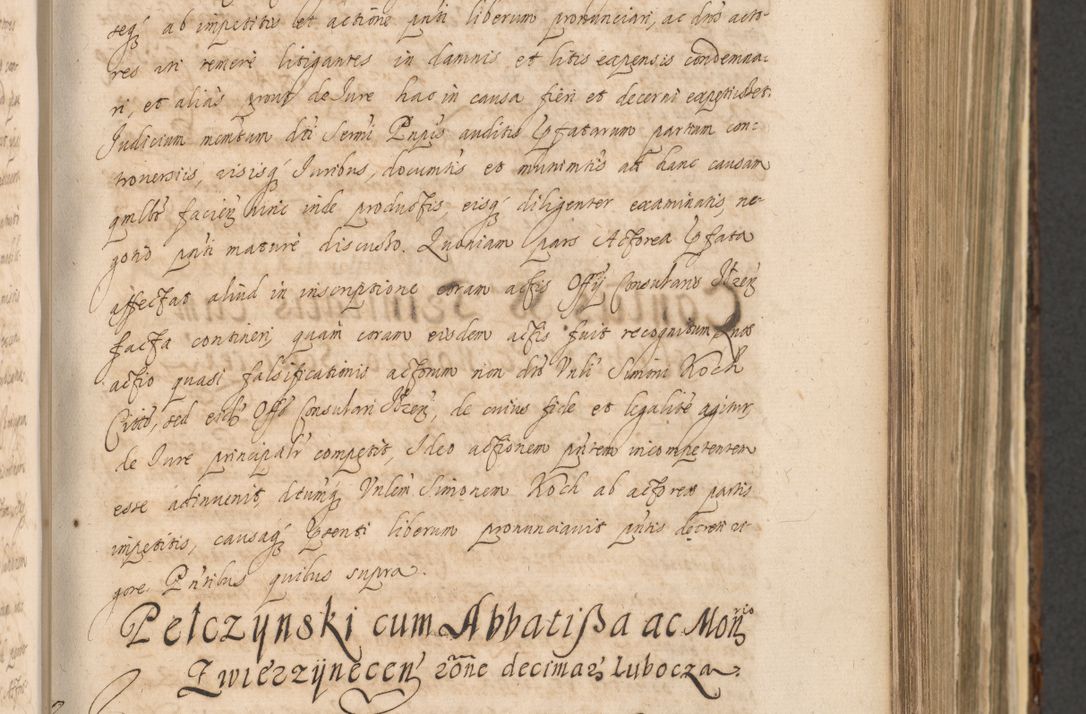 seqz ab impetitis et actione pnti liberum pronunciari, ac dnos acto-
res uti temere litigantes in damnis et litis expensis condemna-
ri, et alias prout de Iure hac in causa fieri et decerni expetistet.
Iudicium memtum dti Sermi Pnpis auditis Ipfatarum partium con-
troversiis, visisqz Iuribus, documtis et munimtis ad hanc causam
qmlbt facien hinc inde productis, eisqz diligenter examinatis, ne-
gotio pnti mature discusso. Quoniam pars Actorea Ipfata
affectat aliud in inscriptione coram actis Offy Consularis
facta contineri quam coram eisdem actis fuit recognitum
actio quasi falsificationis actorum non dto Vnli Simini Koch
sed Offo Consulari de cuius fide et legalite agitur,
de Iure principalr competit, Ideo actionem pntem incompetentem
esse adinvenit, dtumqz Vnlem Simonem Koch ab actorea partis
impetitis, causaqz liberum pronunciavit pntis decreti vi-
gore Pntibus quibus supra.
Pelczynski cum Abbatißa ac Mon rio
Zwierzynecen rone decimaz Lubocza